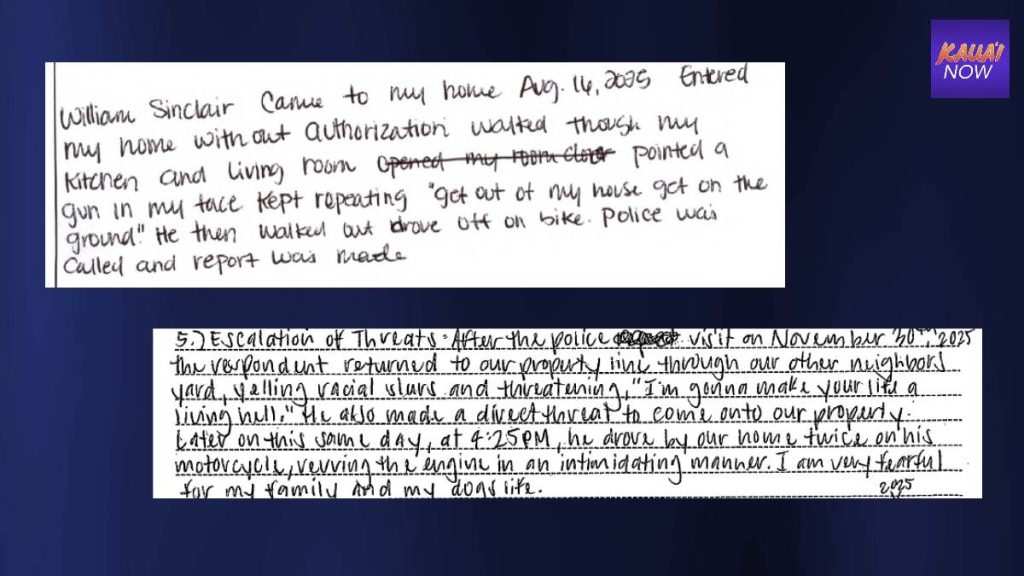 KAUA'I
NOW
William Sinclair Came to my home Aug. 16, 2025 Entered
my home without authorization walked though my
kitchen and living room opened my room door pointed a
gun in my face kept repeating "get out of my house get on the
ground". He then walked out drove off on bike. Police was
called and report was made
5.) Escalation of Threats: After the police visit on November 30th, 2025
the respondent returned to our property line through our other neighbors
yard, yelling racial slurs and threatening, "I'm gonna make your life a
living hell." He also made a direct threat to come onto our property.
Later on this same day, at 4:25PM, he drove by our home twice on his
motorcycle, revving the engine in an intimidating manner. I am very fearful
for my family and my dogs life.
2025